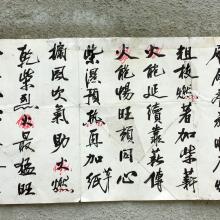 粗枝燃著加柴薪
火能延續新傳
火能暢旺賴同心
柴濕預再加紙
搧风吹氣助火燃
乾柴烈火最猛旺